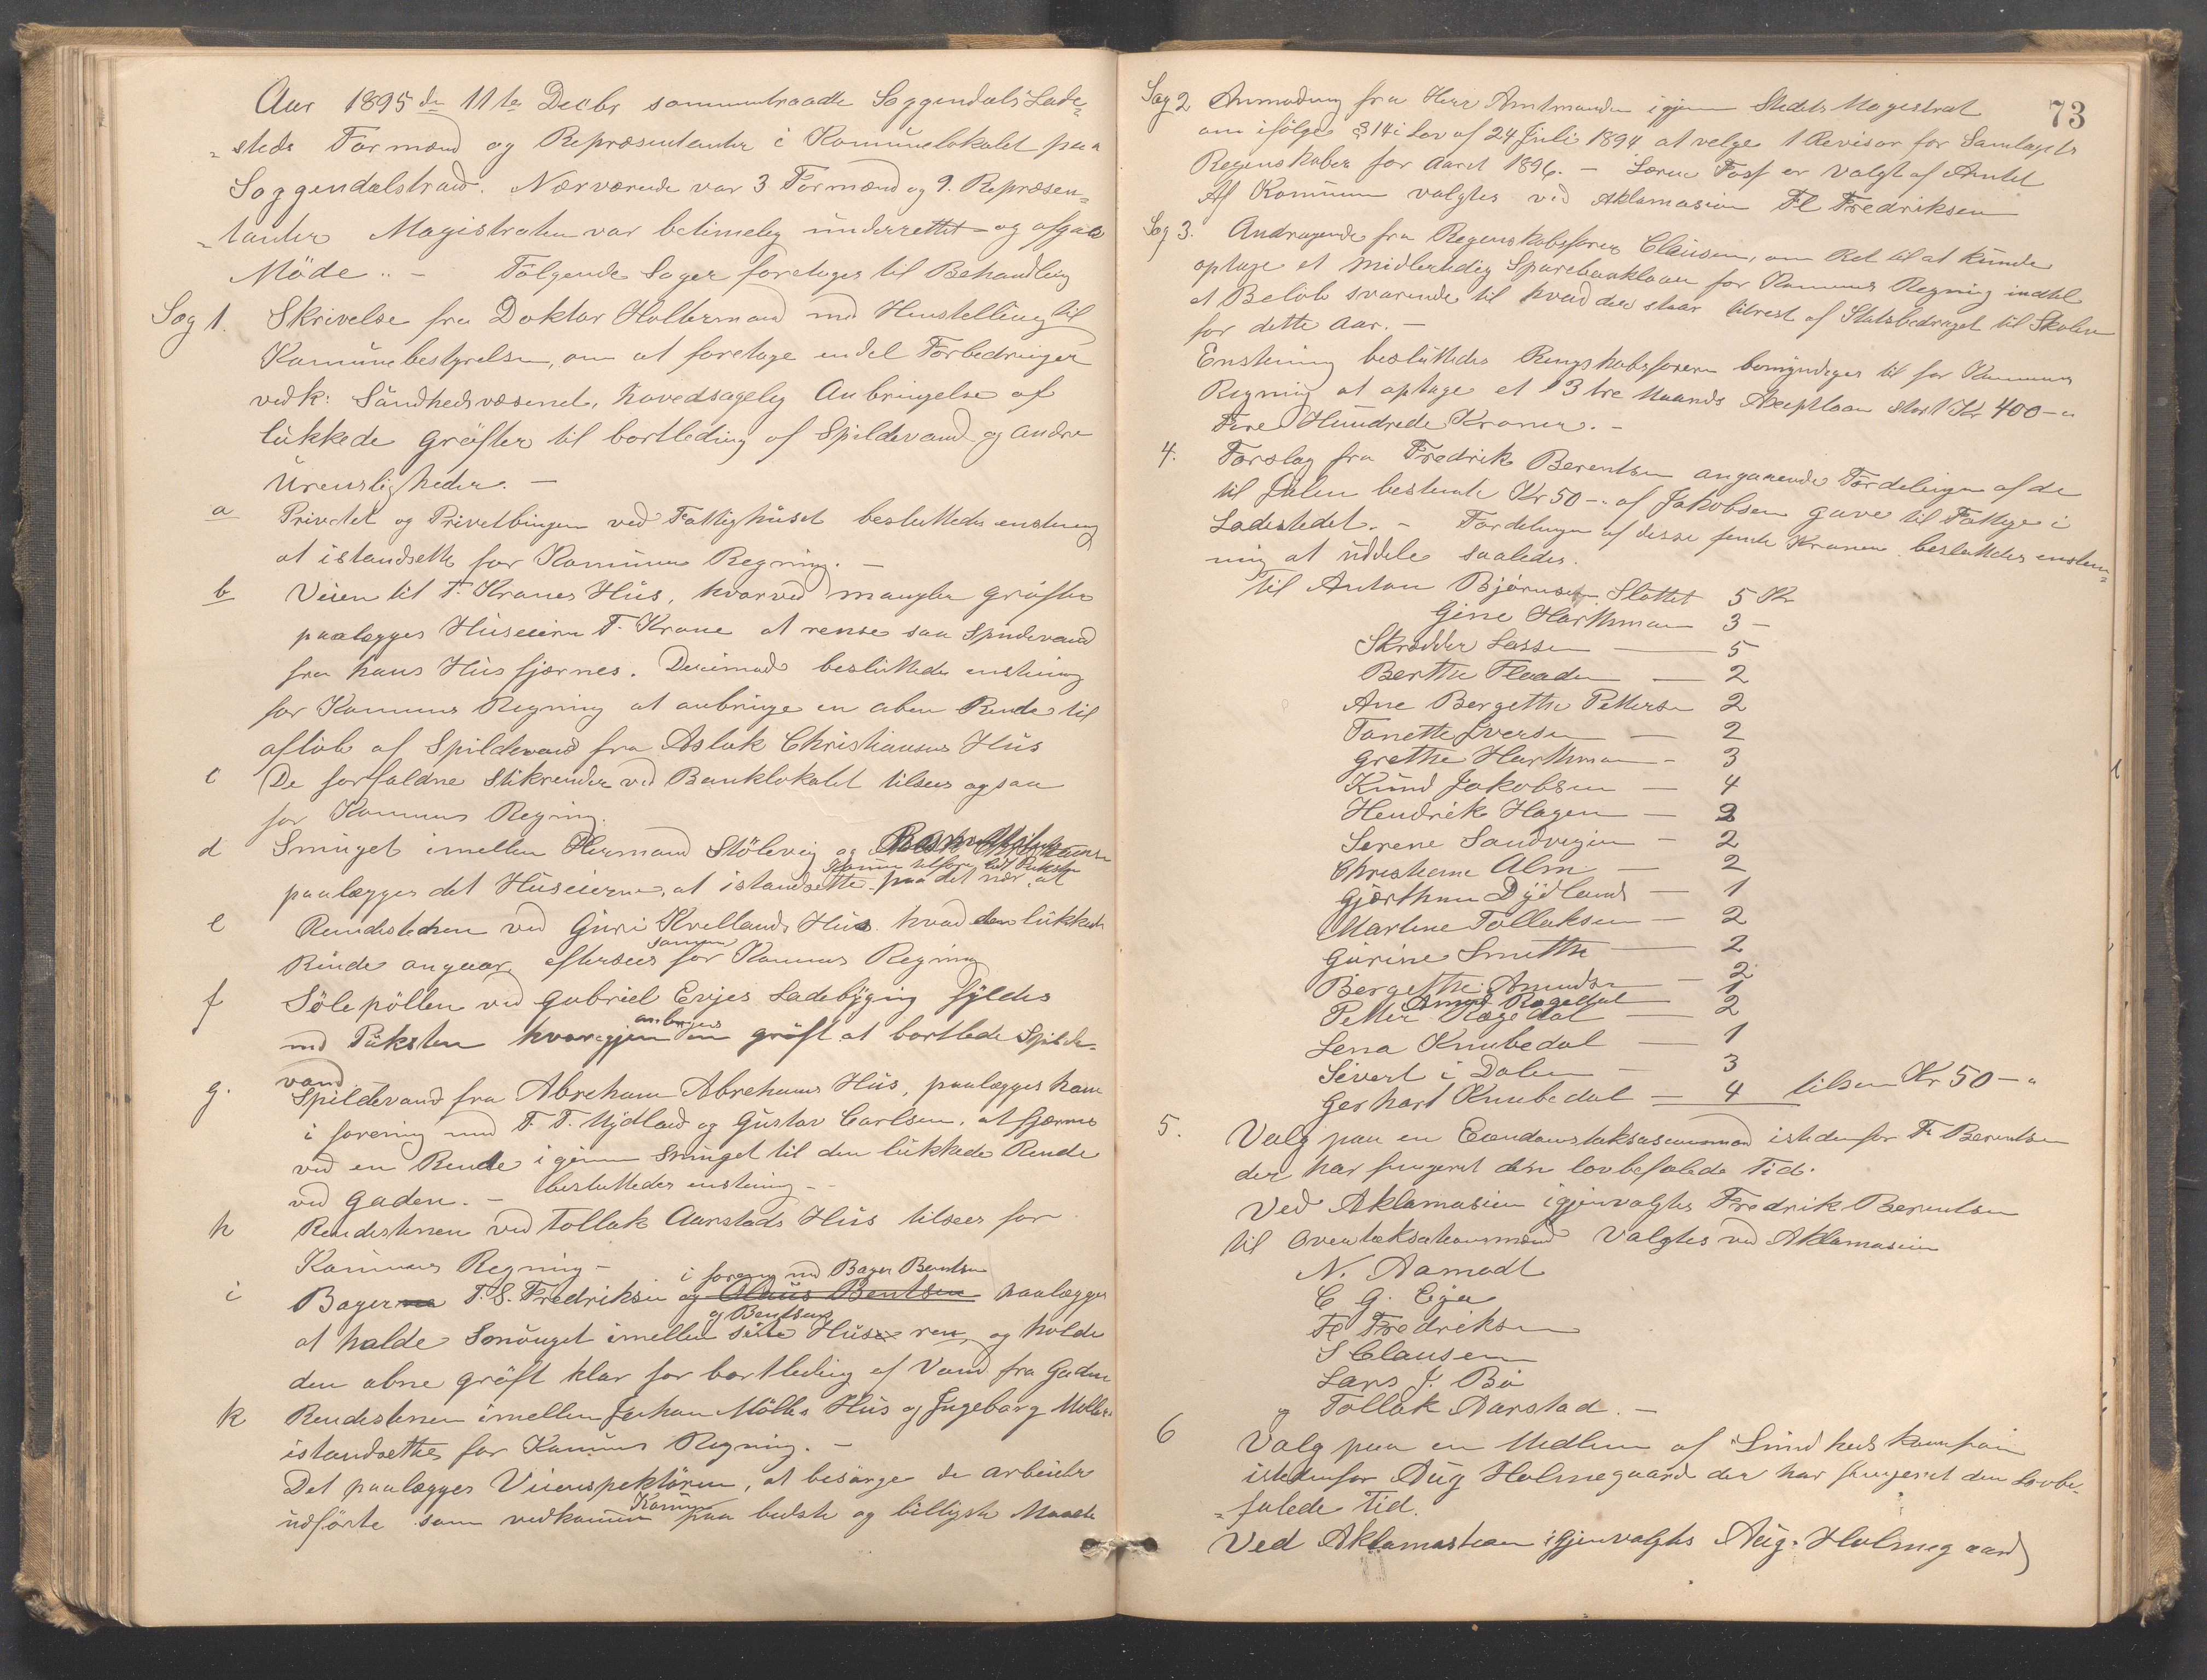 Aar 1895 dn 11te Decbr sammentraadte Soggendals Lade-
-steds Formænd og Repræsentanter i Komunelokalet paa
Soggendalstrand. Nærværende var 3 Formænd og 9. Repræsen-
-tanter Magistraten var betimelig underrettet og afgav
Möde .. - Fölgende Sager foretages til Behandling
Sag 1. Skrivelse fra Doktor Holterman med Henstelling til
Komunebestyrelsen, om at foretage endel Forbedringer
vedk: Sundhedsvæsenet, hovedsagelig Anbringelse af
lukkede Gröfter til bortleding af Spildevand og andre
Urensligheder. -
a Privetet og Privetbingen ved Fattighuset besluttedes enstemig
at istandsette for Komunens Regning. -
b Veien til T. Kranes Hus, hvorved mangler Gröfter
paalægges Huseieren T. Krane at rense saa Spildevand
fra hans Hus fjærnes. Derimod besluttedes enstemig
for Komunens Regning at anbringe en aben Rende til
aflöb af Spildevand fra Aslak Christiansens Hus
c De forfaldne Stikrender ved Banklokalet tilsees ogsaa
for Komunens Regning.
d Smuget imellem Hermand Stölevig og
Komun tilförer Puksten
paalægges det Huseierne, at istandsette paa det nær at
e Rendestenen ved Guri Kvellands Hus hvad den lukkede
Rende angaar, eftersees samme for Komunens Regning
f Sölepöllen ved Gabriel Evjes Ladebyging fyldes
med Puksten hvorigjen anbringes en gröft at bortlede Spilde-
vand
g. Spildevand fra Abreham Abrehams Hus, paalægges ham
i forening med T. T. Mydland og Gustav Carlsen, at fjærne
ved en Rende igjenn Smuget til den lukkede Rende
ved Gaden. - besluttedes enstemig -
h Rendestenen ved Tollak Aarstads Hus tilsees for
Komunens Regning -
i forening med Bager Bentsen
i Bagerne T. S. Fredriksen og Claus Bentsen paalægges
og Bentsens
at holde Smuget imellem sitte Huse ren, og holde
den abne gröft klar for bortleding af Vand fra Gaden
k Rendestenen imellem Johan Möllers Hus og Ingeborg Möllers
istandsættes for Komunens Regning. -
Det paalægges Veiinspektören, at besörge de arbeider
udförte som vedkommer Komunen paa bedste og billigste Maade
73
Sag 2 Anmodning fra Herr Amtmanden igjenn Stedets Magistrat
om ifölge § 14 i Lov af 24 Juli 1894 at velge 1 Revisor for Samlagets
Regenskaber for Aaret 1896. - Soren Foss er valgt af Amtet
Af Komunen valgtes ved Aklamasion Fl Fredriksen
Sag 3. Andragende fra Regenskabsförer Clausen, om Ret til at kunde
optage et midlertidig Sparebanklaan for Komunens Regning indtil
et Belöb svarende til hvad der staar tilrest af Statsbidraget til Skolen
for dette Aar. -
Enstemig besluttedes Rengskabsföreren bemyndiges til for Komunens
Regning at optage et 3 tre Maaneds Akceptlaan stort Kr 400-"
Fire Hundrede Kroner. -
4. Forslag fra Fredrik Berentsen angaaende Fordelingen af de
til Julen bestemte Kr 50-" af Jakobsen gave til Fattige i
Ladestedet. - Fordelingen af desse femti Kroner besluttedes enstem-
mig at uddele saaledes.
Til Anton Björnsen Slottet 5 Kr
Gine Harthman 3 -
Skrædder Lassen — 5
Berthe Floaden — 2
Ane Bergethe Pettersen 2
Tanette Iversen — 2
Grethe Harthman - 3
Knud Jakobsen — 4
Hendrik Hagen — 2
Serene Sandvigen - 2
Christiane Alm — 2
Gjærthru Dydland — 1
Martine Tollaksen — 2
Gurine Smuthe — 2
Bergethe Amundsen — 2
Amund Rægedal 1
Petter Rægedal — 2
Lena Knubedal — 1
Sivert i Dalen — 3
Gerhart Knubedal — 4 tilsam Kr 50-"
5. Valg paa en Eiendomstaksasionmand istedenfor F. Berentsen
der har fungeret den lovbefalede Tid.
Ved Aklamasion igjenvalgtes Fredrik Berentsen
til Overtaksationsmænd Valgtes ved Aklamasion
N. Aamodt
C G. Eger
Fl Fredriksen
S Clausen
Lars J. Bö
og Tollak Aarstad. -
6 Valg paa en Medlem af Sundhedskomision
istedenfor Aug Holmegaard der har fungeret den Lovbe-
-falede Tid.
Ved Aklamastion igjenvalgtes Aug. Holmegaard